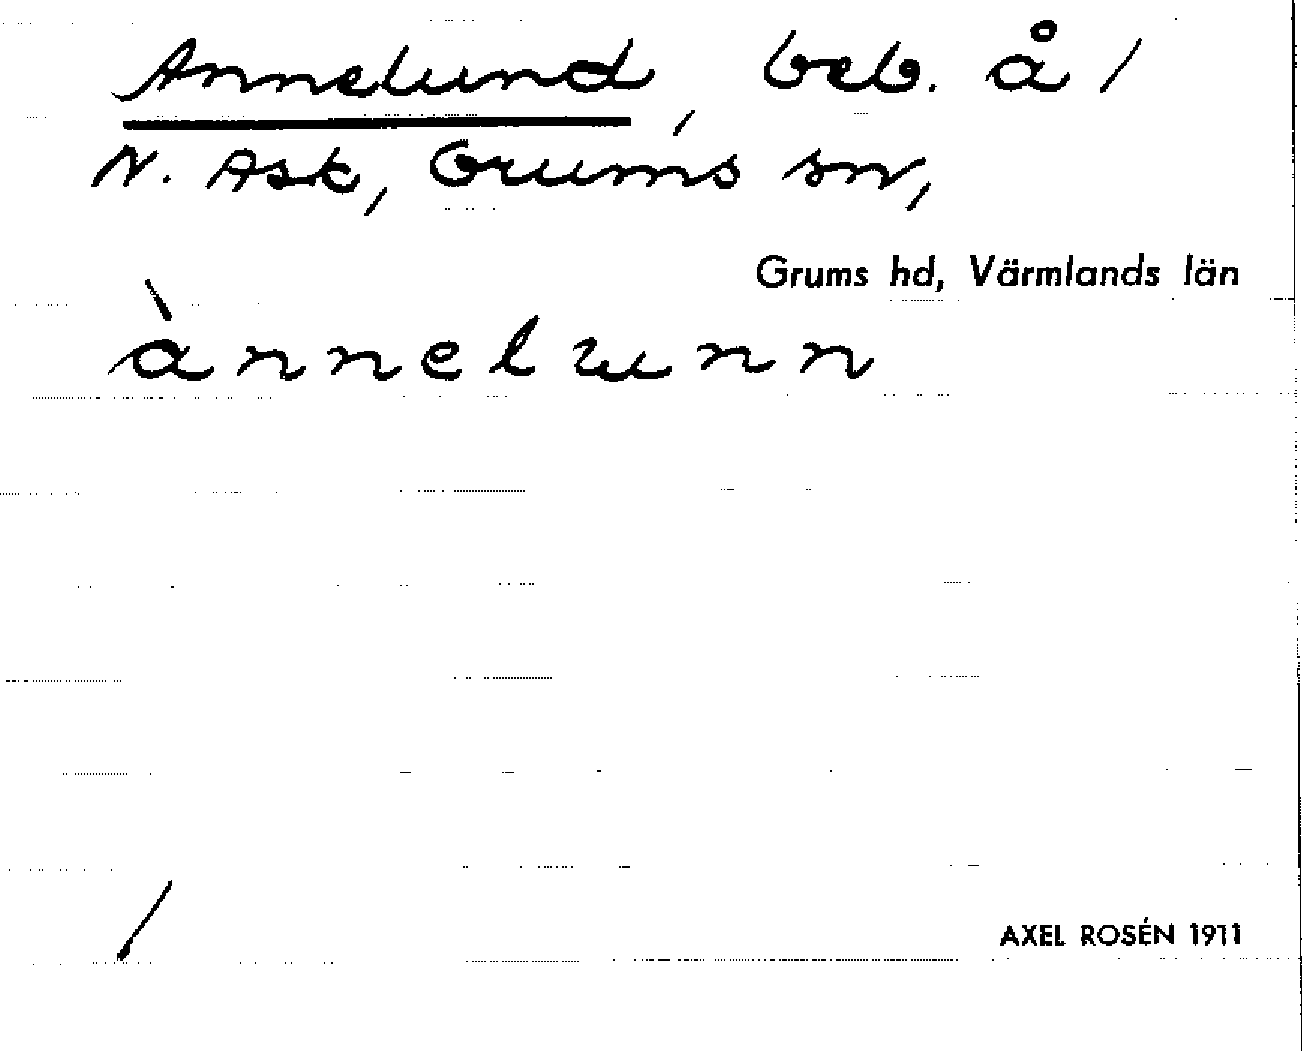 Annelund, beb. å /
N. Ask, Grums sn,
Grums hd, Värmlands län
ànnelunn
/
AXEL ROSÉN 1911